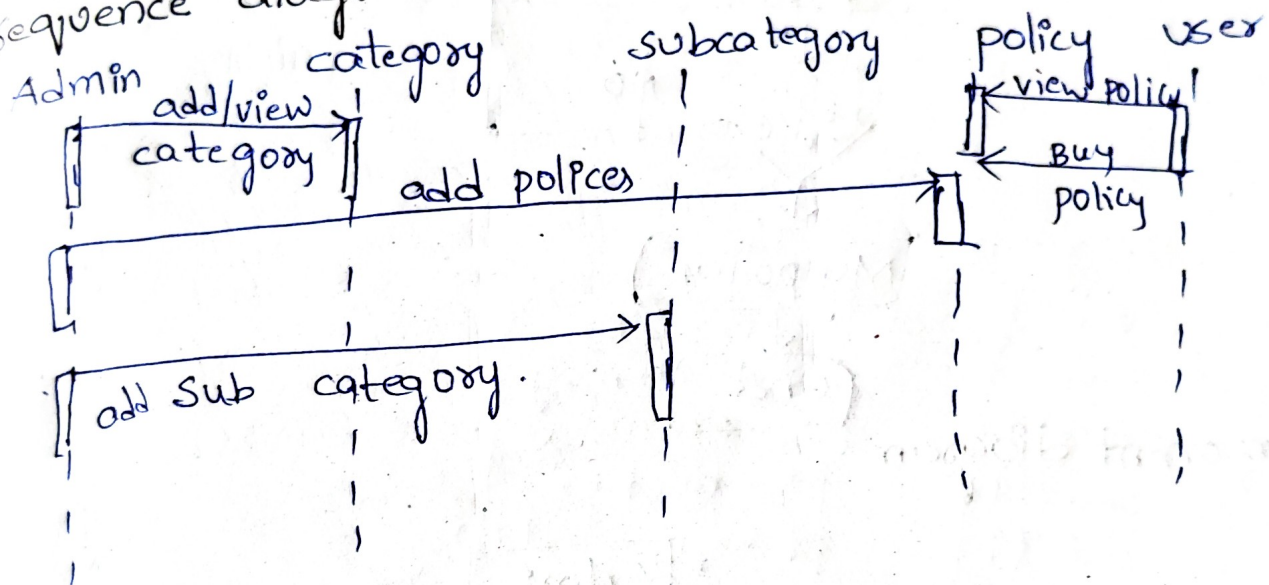 sequence
Admin
category
subcategory
policy
user
add/view
category
view policy
Buy
policy
add polices
add Sub category.